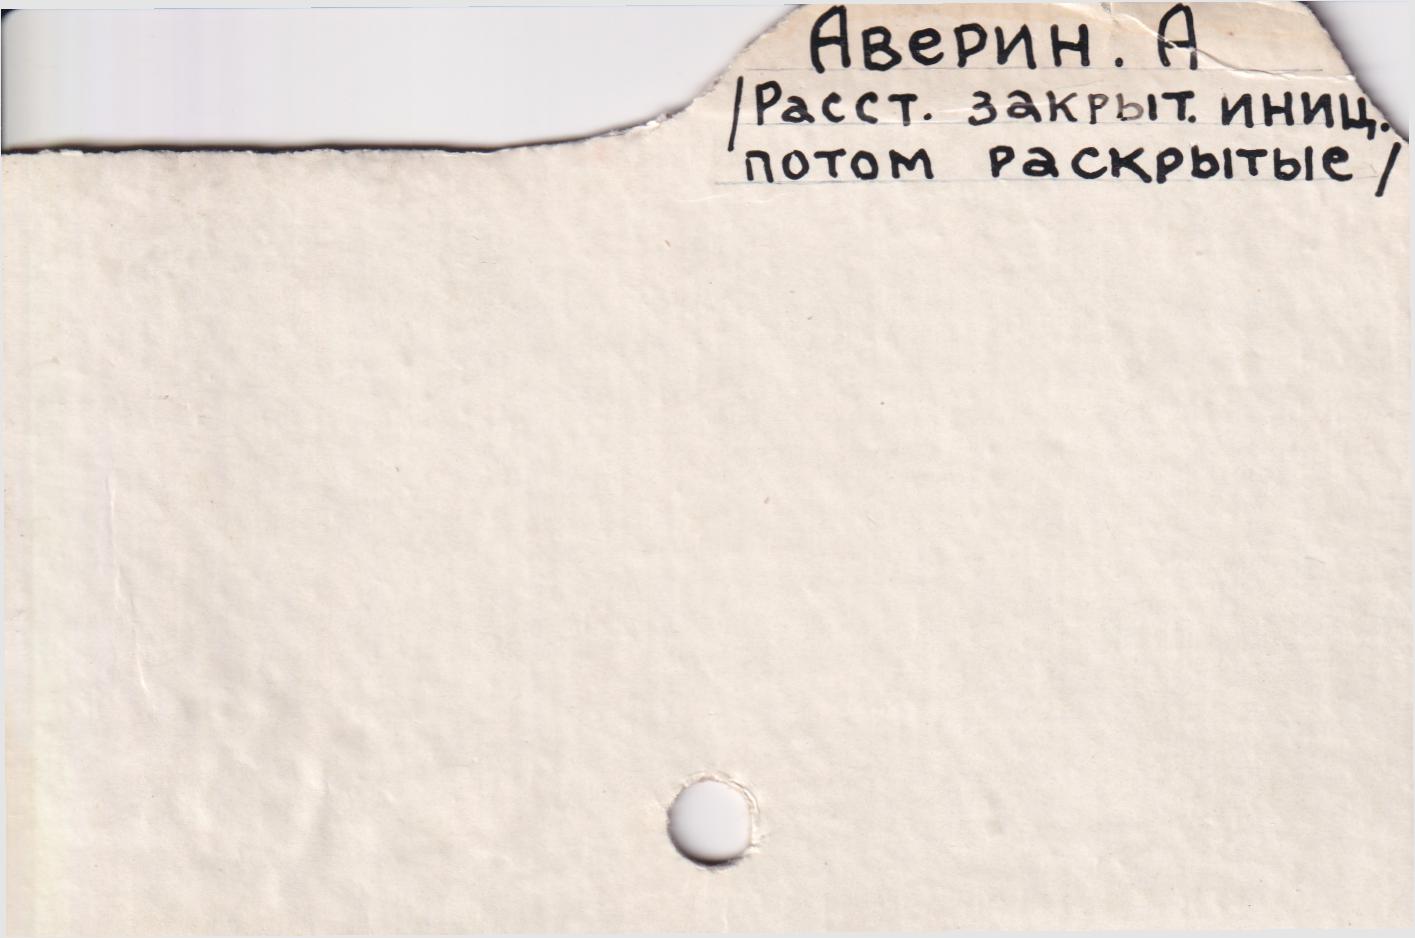 Аверин. А
/Расст. закрыт. иниц.
потом раскрытые/